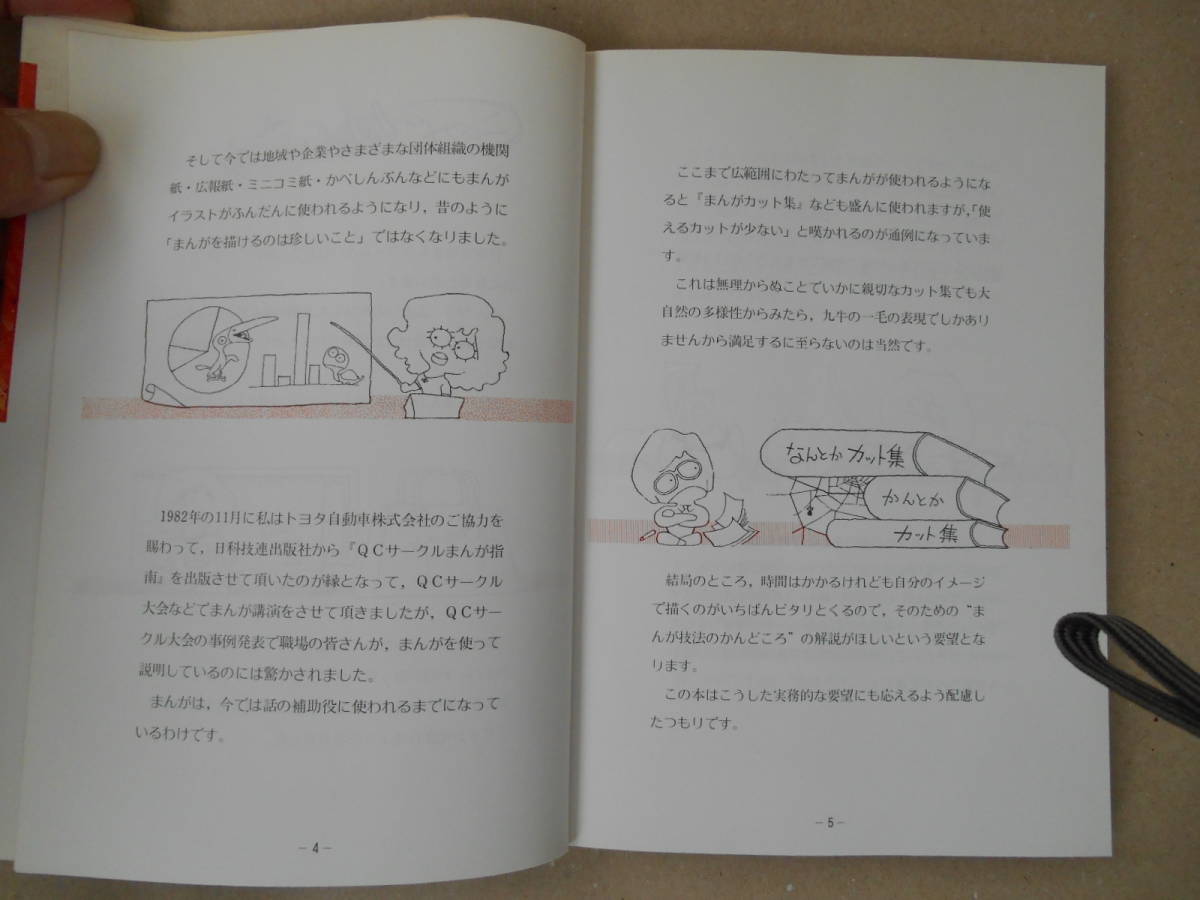 そして今では地域や企業やさまざまな団体組織の機関
紙・広報紙・ミニコミ紙・かべしんぶんなどにもまんが
イラストがふんだんに使われるようになり，昔のように
「まんがを描けるのは珍しいこと」ではなくなりました。
1982年の11月に私はトヨタ自動車株式会社のご協力を
賜わって，日科技連出版社から『ＱＣサークルまんが指
南』を出版させて頂いたのが縁となって，ＱＣサークル
大会などでまんが講演をさせて頂きましたが，ＱＣサー
クル大会の事例発表で職場の皆さんが，まんがを使って
説明しているのには驚かされました。
まんがは，今では話の補助役に使われるまでになって
いるわけです。
－4－
ここまで広範囲にわたってまんがが使われるようにな
ると『まんがカット集』なども盛んに使われますが，「使
えるカットが少ない」と嘆かれるのが通例になっていま
す。
これは無理からぬことでいかに親切なカット集でも大
自然の多様性からみたら，九牛の一毛の表現でしかあり
ませんから満足するに至らないのは当然です。
なんとかカット集
かんとか
カット集
結局のところ，時間はかかるけれども自分のイメージ
で描くのがいちばんピタリとくるので，そのための“ま
んが技法のかんどころ”の解説がほしいという要望とな
ります。
この本はこうした実務的な要望にも応えるよう配慮し
たつもりです。
－5－